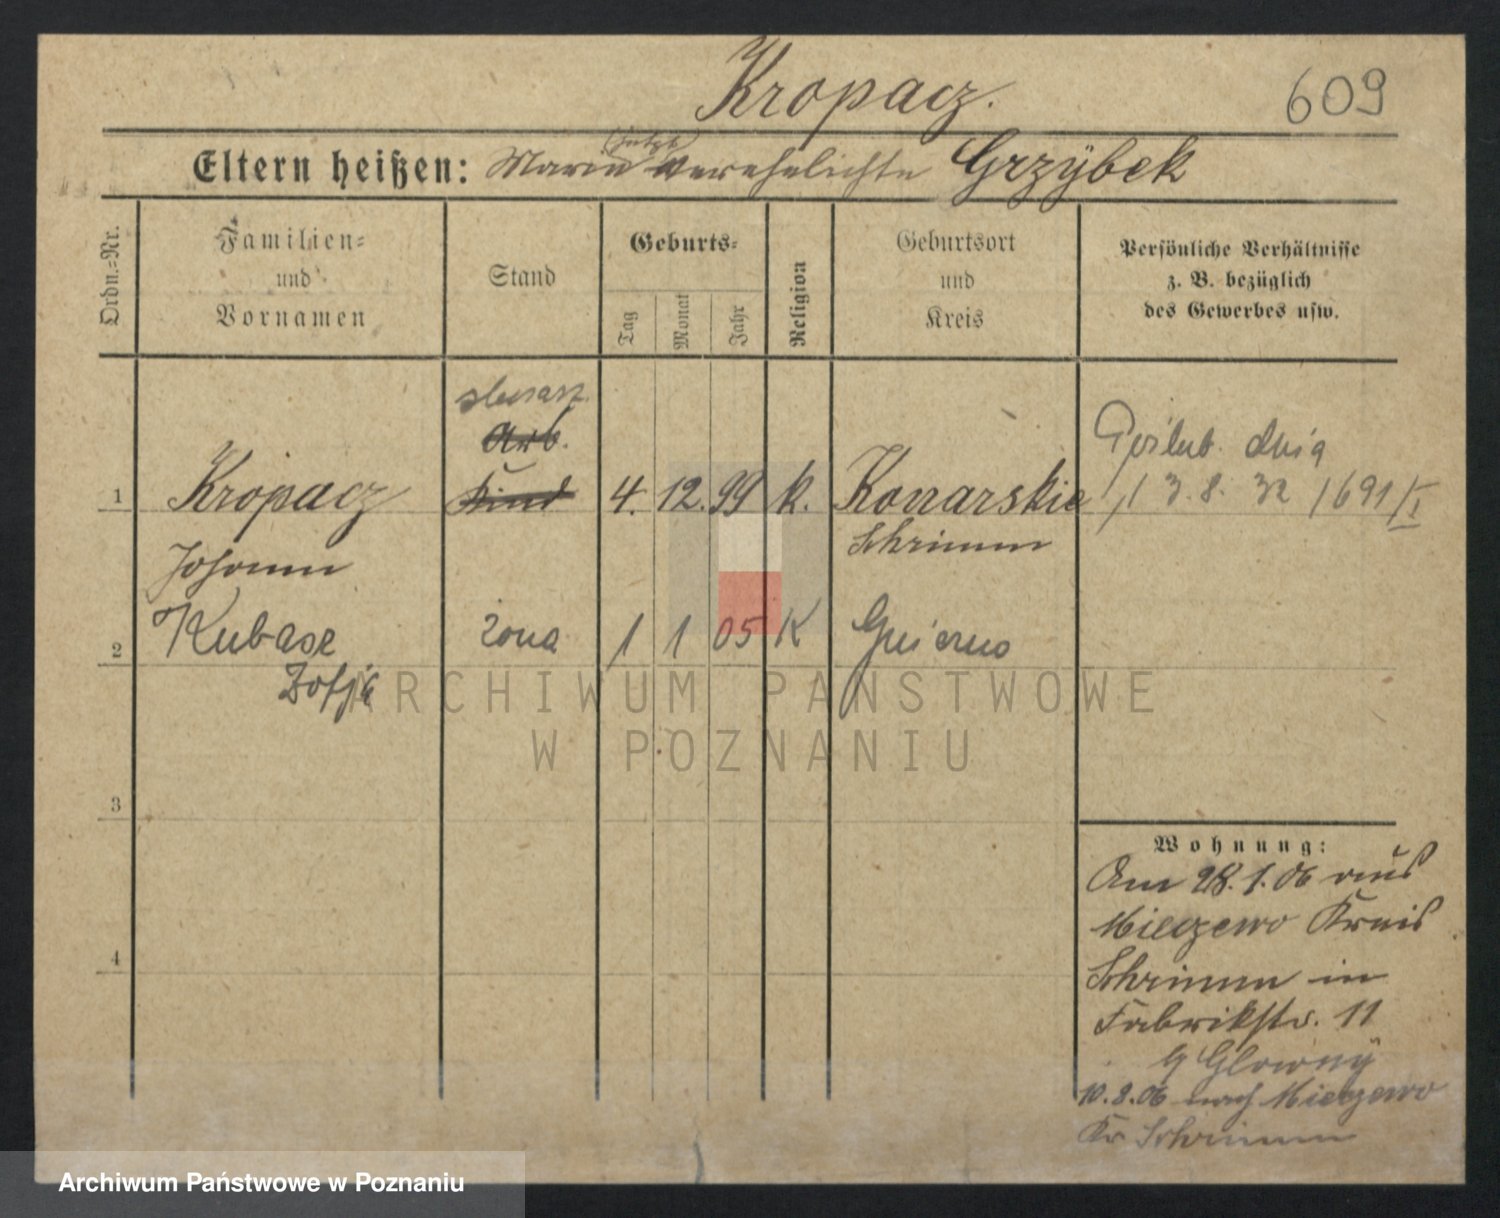 Kropacz.
609
Eltern heißen: Marie (jetzt) verehelichte Grzÿbek
Ordn.=Nr.
Familien=
und
Vornamen
Stand
Geburts=
Tag
Monat
Jahr
Religion
Geburtsort
und
Kreis
Persönliche Verhältnisse
z. B. bezüglich
des Gewerbes usw.
slusarz
Arb.
1 Kropacz Kind 4. 12. 99 k. Konarskie
Johann Schrimm
dnia
13.8.32 1691/I
2 Kubasz żona 1 1 05 K
Zofja
3
4
Wohnung:
Am 28.1.06 aus
Mieczewo Kreis
Schrimm in
Fabrikstr. 11
Glownÿ
10.8.06 nach Mieczewo
Kr Schrimm
ARCHIWUM PAŃSTWOWE
W POZNANIU
Archiwum Państwowe w Poznaniu